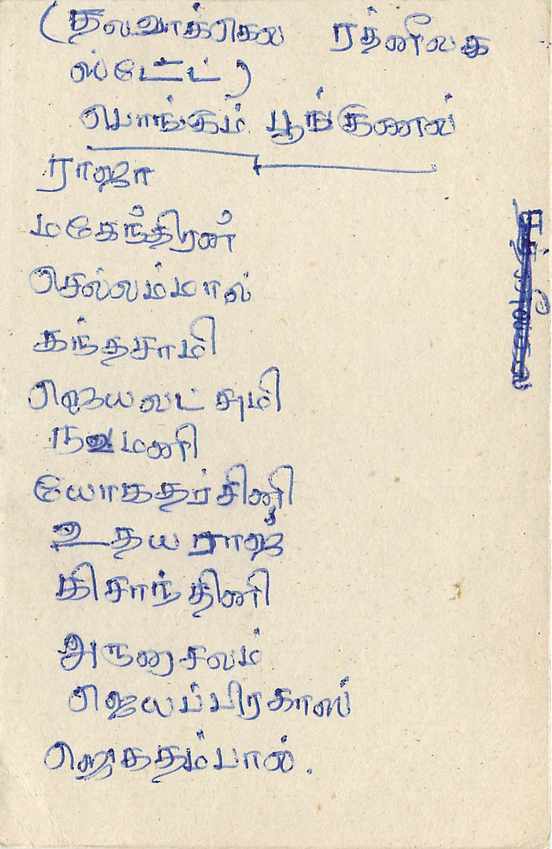 (தலவாக்கிலை ரத்னீலக
ஸ்டேட்)
பொங்கம் பூங்கனல்
ராஜா
மகேந்திரன்
செல்லம்மால்
கந்தசாமி
ஜெயலட்சுமி
நவமணி
யோகதர்சினி
உதயராஜ்
கிசாந்தினி
அருசைலம்
ஜெயப்பிரகாஸ்
ஜெகதம்பால்.